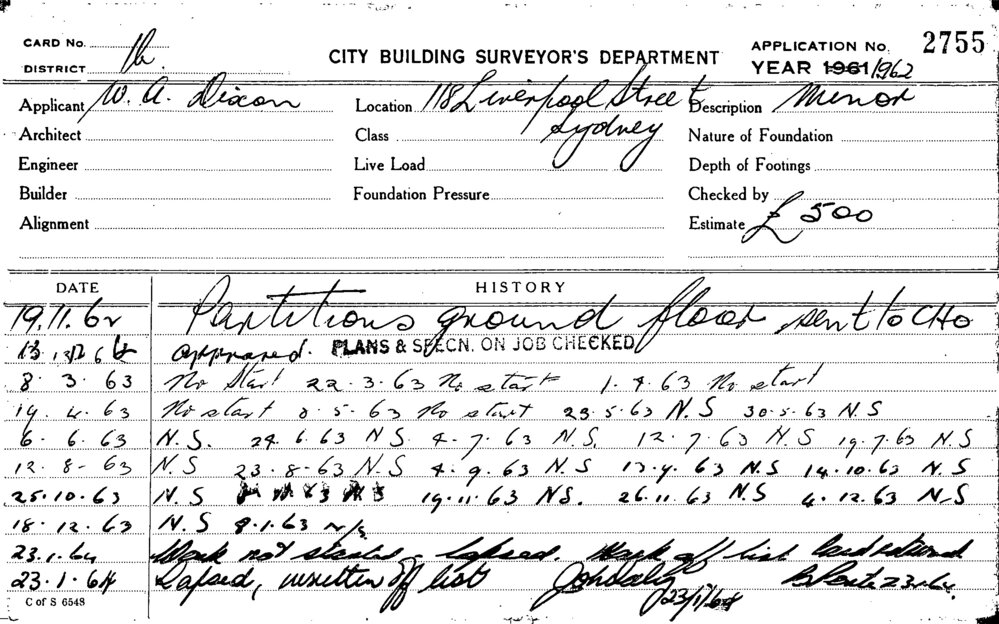 CARD No.
DISTRICT 1b.
CITY BUILDING SURVEYOR'S DEPARTMENT
APPLICATION No. 2755
YEAR 1961/1962
Applicant W. A. Dixon Location 118 Liverpool Street Description Minor
Architect Class Sydney Nature of Foundation
Engineer Live Load Depth of Footings
Builder Foundation Pressure Checked by
Alignment Estimate £ 500
DATE HISTORY
19.11.62 Partitions ground floor sent to CHO
approved. PLANS & SPECN. ON JOB CHECKED
8. 3. 63 No Start 22.3.63 No start 1.4.63 No start
19. 4. 63 No start 8.5.63 No start 23.5.63 N.S 30.5.63 N.S
6. 6. 63 N.S. 24.6.63 N.S. 4.7.63 N.S. 12.7.63 N.S 19.7.63 N.S
12. 8. 63 N.S 23.8.63 N.S 4.9.63 N.S 17.9.63 N.S 14.10.63 N.S
25.10.63 N.S 19.11.63 N.S. 26.11.63 N.S 4.12.63 N.S
18.12.63 N.S 8.1.63 N/S
23.1.64 Work not started - lapsed. Mark off list
23.1.64 Lapsed, written off list 23/1/64
C of S 6548